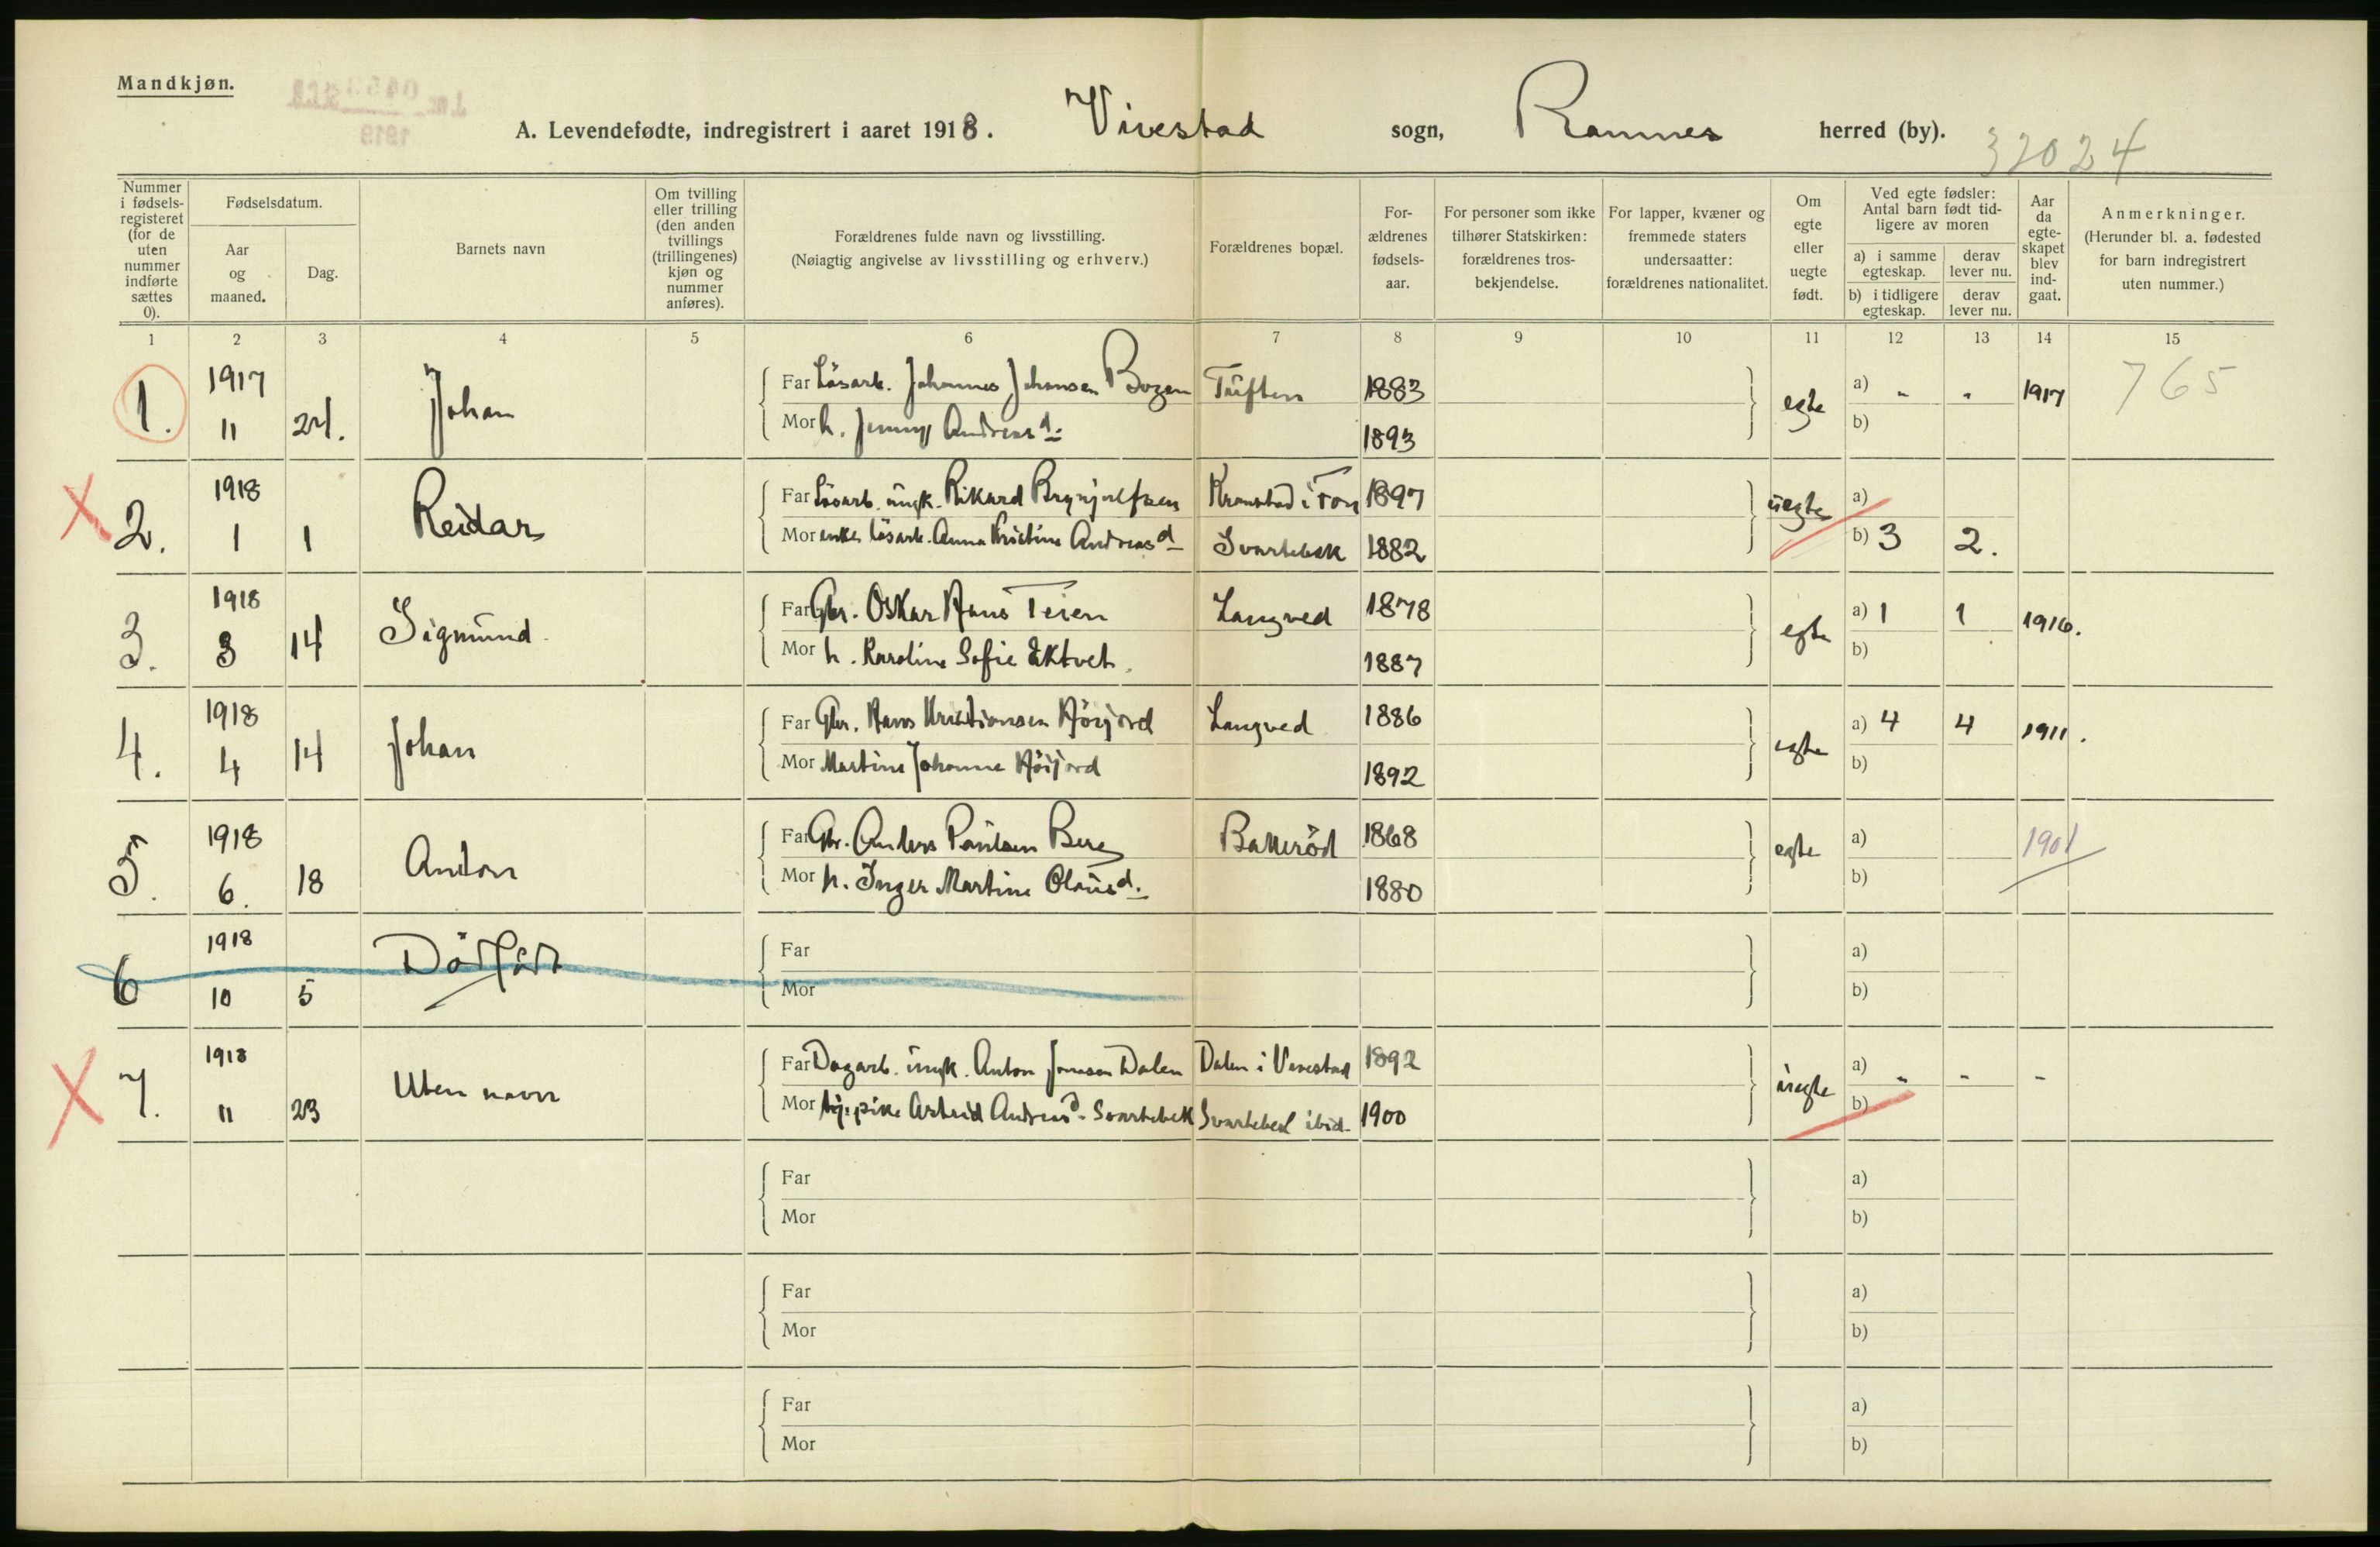 Mandkjøn.
A. Levendefødte, indregistrert i aaret 1918. Vivestad sogn, Ramnes herred (by). 32024
Nummer i fødsels-registeret (for de uten nummer indførte sættes 0).
Fødselsdatum.
Aar og maaned.
Dag.
Barnets navn
Om tvilling eller trilling (den anden tvillings (trillingenes) kjøn og nummer anføres).
Forældrenes fulde navn og livsstilling.
(Nøiagtig angivelse av livsstilling og erhverv.)
Forældrenes bopæl.
For-ældrenes fødsels-aar.
For personer som ikke tilhører Statskirken: forældrenes tros-bekjendelse.
For lapper, kvæner og fremmede staters undersaatter: forældrenes nationalitet.
Om egte eller uegte født.
Ved egte fødsler: Antal barn født tid-ligere av moren
a) i samme egteskap. derav lever nu.
b) i tidligere egteskap. derav lever nu.
Aar da egte-skapet blev ind-gaat.
Anmerkninger.
(Herunder bl. a. fødested for barn indregistrert uten nummer.)
1 2 3 4 5 6 7 8 9 10 11 12 13 14 15
1. 1917 11 24. Johan
Far Løsarb. Johannes Johansen Bogen Tüften 1883 egte a) - - 1917 765
Mor h. Jenny Andreasd. 1893 b)
2. 1918 1 1 Reidar
Far Løsarb. ungk. Rikard Brynjulfsen Kronstad i Fon 1897 uegte a)
Mor enke løsarb. Anna Kristine Andreasd Svartebek 1882 b) 3 2.
3. 1918 3 14 Sigmund
Far Gbr. Oskar Hans Teien Langved 1878 egte a) 1 1 1916.
Mor h. Karoline Sofie Ektvet. 1887 b)
4. 1918 4 14 Johan
Far Gbr. Hans Kristiansen Høijord Langved 1886 egte a) 4 4 1911.
Mor Martine Johanne Høijord 1892 b)
5. 1918 6. 18 Anton
Far Gbr. Anders Paulsen Berg Bakkerød 1868 egte a) 1901
Mor h. Inger Martine Olausd. 1880 b)
6 1918 10 5 Dödfödt
Far a)
Mor b)
7. 1918 11 23 Uten navn
Far Dagarb. ungk. Anton Jonsson Dalen Dalen i Vivestad 1892 uegte a) - - -
Mor tj.pike Astrid Andreasd. Svartebek Svartebek ibid. 1900 b)
Far a)
Mor b)
Far a)
Mor b)
Far a)
Mor b)